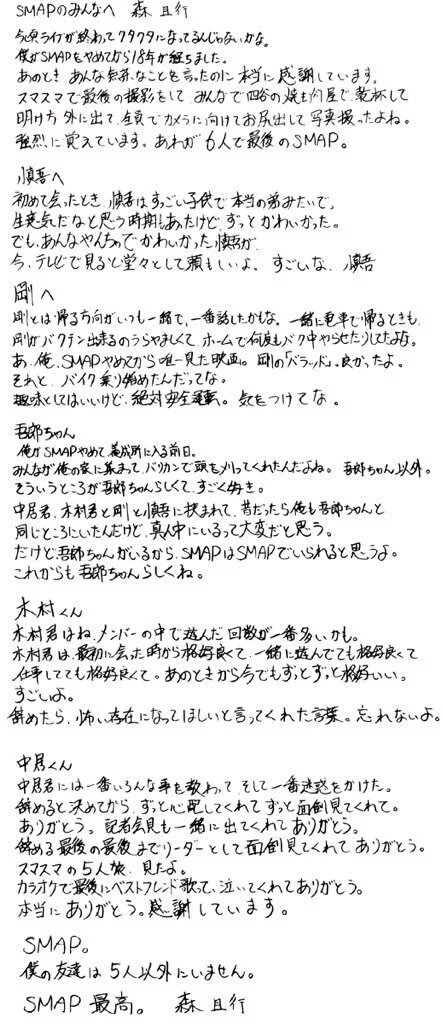 SMAPのみんなへ 森 且行
今頃ライブが終わってクタクタになってるんじゃないかな。
僕がSMAPをやめてから18年が経ちました。
あのとき あんな無茶なことを言ったのに本当に感謝しています。
スマスマで最後の撮影をして みんなで四谷の焼き肉屋で、乾杯して
明け方 外に出て、全員でカメラに向けてお尻出して写真撮ったよね。
強烈に覚えています。あれが6人で最後のSMAP。
慎吾へ
初めて会ったとき、慎吾はすっごい子供で本当の弟みたいで。
生意気だなと思う時期もあったけど、ずっとかわいかった。
でも、あんなやんちゃでかわいかった慎吾が
今、テレビで見ると堂々として頼もしいよ。すごいな、慎吾
剛へ
剛とは帰る方向がいつも一緒で、一番話したかもな。一緒に電車で帰るときも、
剛がバクテン出来るのうらやましくて、ホームで何度もバク中やらせたりしたよな。
あ、俺、SMAPやめてから唯一見た映画。剛の「バラッド」。良かったよ。
それと、バイク乗り始めたんだってな。
趣味としてはいいけど、絶対安全運転。気をつけてな。
吾郎ちゃん
俺がSMAPやめて、養成所に入る前日。
みんなが俺の家に集まって、バリカンで頭を刈ってくれたんだよね。吾郎ちゃん以外。
そういうところが吾郎ちゃんらしくて、すごく好き。
中居君、木村君と剛と慎吾に挟まれて、昔だったら俺も吾郎ちゃんと
同じところにいたんだけど、真ん中にいるって大変だと思う。
だけど吾郎ちゃんがいるから、SMAPはSMAPでいられると思うよ。
これからも吾郎ちゃんらしくね。
木村くん
木村君はね、メンバーの中で遊んだ回数が一番多いかも。
木村君は、最初に会った時から格好良くて、一緒に遊んでても格好良くて
仕事してても格好良くて。あのときから今でもずっとずっと格好いい。
すごいよ。
辞めたら、怖い存在になってほしいと言ってくれた言葉。忘れないよ。
中居くん
中居君には一番いろんな事を教わって そして一番迷惑をかけた。
辞めると決めてから、ずっと心配してくれてずっと面倒見てくれて。
ありがとう。記者会見も一緒に出てくれてありがとう。
辞める最後の最後までリーダーとして面倒見てくれてありがとう。
スマスマの5人旅、見たよ。
カラオケで最後にベストフレンド歌って、泣いてくれてありがとう。
本当にありがとう。感謝しています。
SMAP。
僕の友達は5人以外にいません。
SMAP 最高。 森 且行